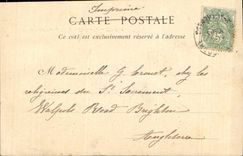 Imprimé
CARTE POSTALE
Ce côté est exclusivement réservé à l'adresse
Mademoiselle G. Crouet, chez les
religieuses du St Sacrement
Walpole Road Brighton
Angleterre